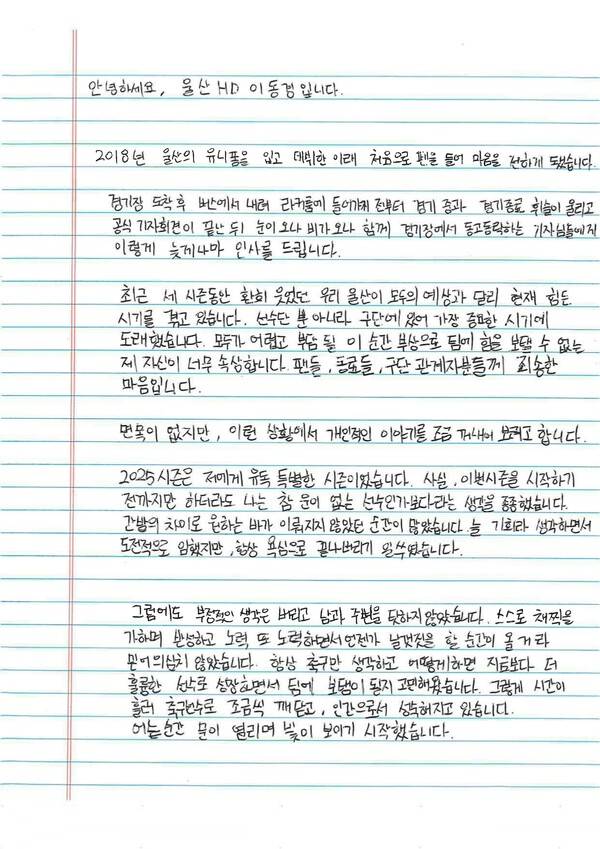 안녕하세요, 울산HD 이동경입니다.
2018년 울산의 유니폼을 입고 데뷔한 이래 처음으로 펜을 들어 마음을 전하게 됐습니다.
경기장 도착 후 버스에서 내려 라커룸에 들어가기 전부터 경기 중과 경기종료 휘슬이 울리고
공식 기자회견이 끝난 뒤 눈이오나 비가오나 함께 경기장에서 동고동락하는 기자님들에게
이렇게 늦게나마 인사를 드립니다.
최근 세 시즌동안 환히 웃었던 우리 울산이 모두의 예상과 달리 현재 힘든
시기를 겪고 있습니다. 선수단 뿐 아니라 구단에 있어 가장 중요한 시기에
도래했습니다. 모두가 어렵고 부담 될 이 순간 부상으로 팀에 힘을 보탤 수 없는
제 자신이 너무 속상합니다. 팬들, 동료들, 구단 관계자분들께 죄송한
마음입니다.
면목이 없지만, 이런 상황에서 개인적인 이야기를 조금 꺼내어 보려고 합니다.
2025시즌은 저에게 유독 특별한 시즌이었습니다. 사실, 이번시즌을 시작하기
전까지만 하더라도 나는 참 운이 없는 선수인가보다라는 생각을 종종했습니다.
간발의 차이로 원하는 바가 이뤄지지 않았던 순간이 많았습니다. 늘 기회라 생각하면서
도전적으로 임했지만, 항상 욕심으로 끝나버리기 일쑤였습니다.
그럼에도 부정적인 생각은 버리고 남과 주변을 탓하지 않았습니다. 스스로 채찍을
가하며 반성하고 노력 또 노력하면서 언젠가 날갯짓을 할 순간이 올 거라
믿어 의심치 않았습니다. 항상 축구만 생각하고 어떻게하면 지금보다 더
훌륭한 선수로 성장하면서 팀에 보탬이 될지 고민해왔습니다. 그렇게 시간이
흘러 축구선수로 조금씩 깨닫고, 인간으로서 성숙해지고 있습니다.
어느순간 문이 열리며 빛이 보이기 시작했습니다.